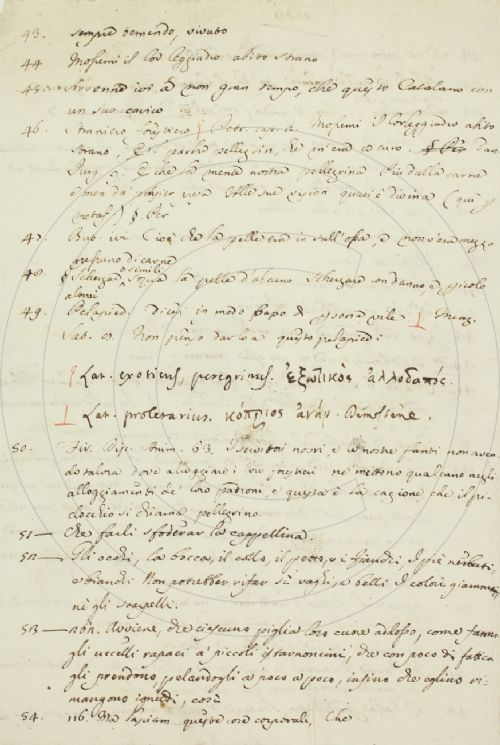 43. sempre temendo, vivuto
44 Mossemi il lor leggiadro abito strano
45 Avvenne ivi a non gran tempo, che questo Catalano con
un suo carico
46. Straniero forestiero § Petr. canz. Mosemi il lor leggiadro abito
strano, E parea pellegrin, Dan
Purg. 9. E che la mente nostra pellegrina Più dalla carne
e men da' pensier presa Alle sue vision quasi è divina (qui p
metaf.)
47. Bab. ivi Cioè che la pelle era in sull'ossa, e non v'era mezzo
nessuno di carne
48. Scherzar sopra la pelle d'alcuno Scherzare con danno e pericolo
altrui
49. Pelapiedi. Dicesi in modo basso di persona vile ⊥ Menz.
Sat. Non penso darla a questo pelapiedi
§ Lat. exoticus, peregrinus. ἐξωτικὸς, ἀλλοδαπός.
⊥ Lat. proletarius. κόπριος ἀνὴρ. Demostene.
50. Fir. Disc. Anim. 63. I scrittoi nostri e le nostre fanti non aven
do talora dove alloggiare i loro forestieri ne mettono qualcuno negli
alloggiamenti de' loro padroni e questa è la cagione che il pi-
docchio si chiama pellegrino.
51 — Che farli sfoderar la cappellina.
52 — Gli occhi, la bocca, il collo, il petto, e i fianchi,
Non potrebber rifar sì vaghi, e belli I color giammai,
nè gli scarpelli.
53 — Avviene, che ciascuno piglia loro cuore addosso, come fanno
gli uccelli rapaci a' piccoli starnoncini, che con poco di fatica
gli prendono, pelandogli a poco a poco, insino che eglino ri-
mangono ignudi, così
54. 116. Ma lasciam queste cose corporali, Che